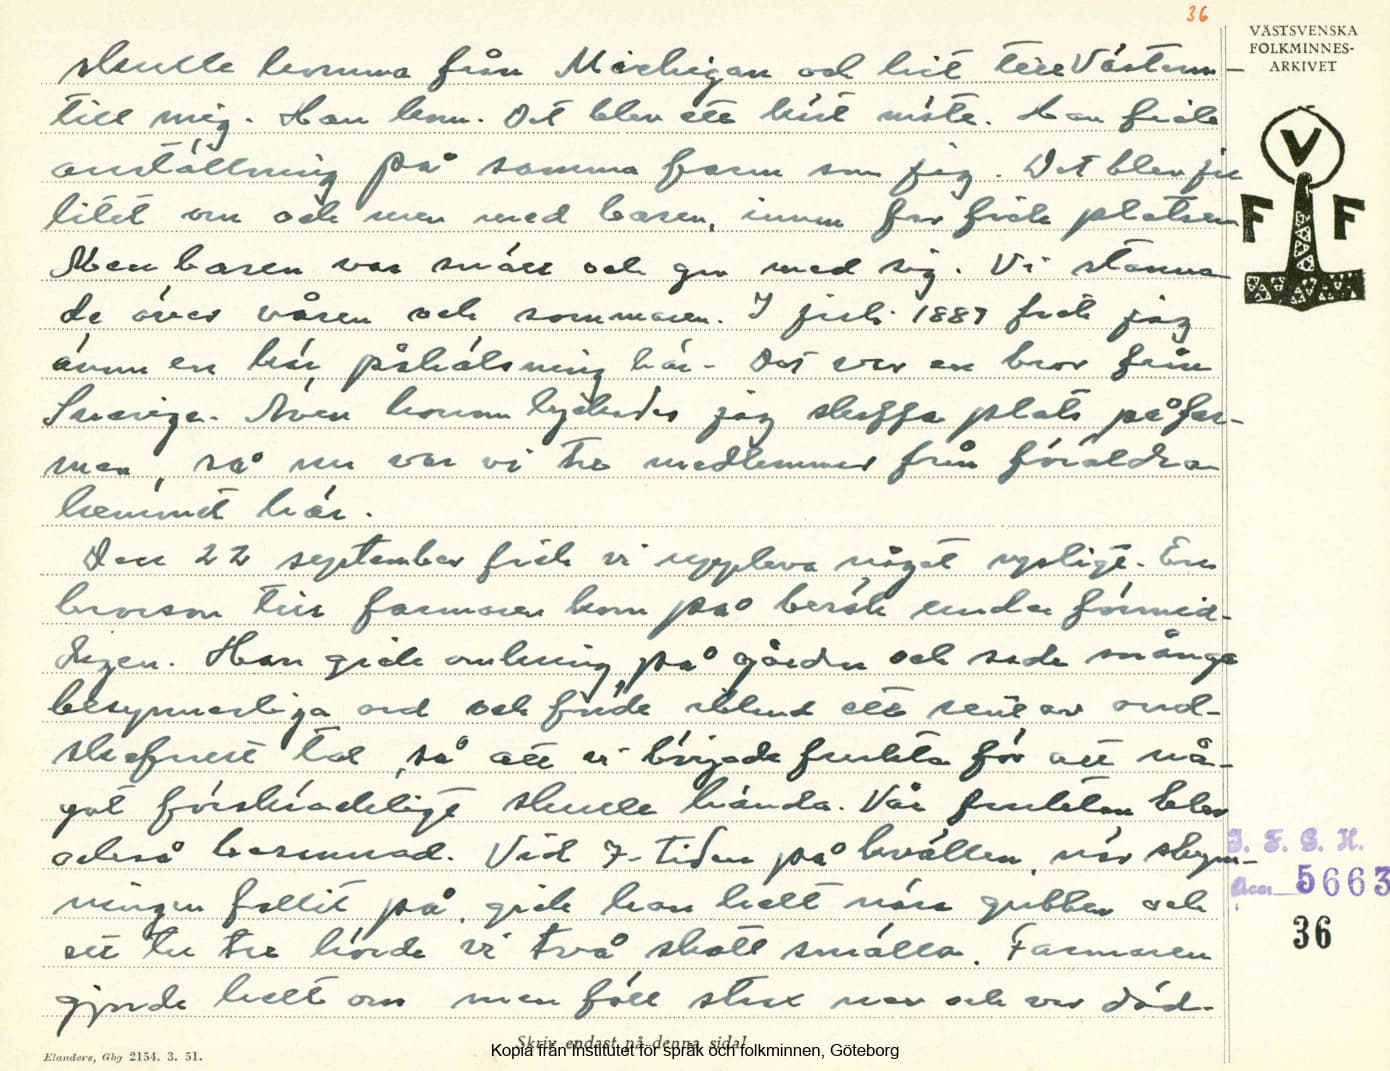 36
VÄSTSVENSKA
FOLKMINNES-
ARKIVET
V
F F
skulle komma från Michigan och hit till Västern
till mig. Han kom. Det blev ett kärt möte. Han fick
anställning på samma farm som jag. Det blev ju
litet om och men med basen, innan far fick platsen
Men basen var snäll och gav med sig. Vi stanna
de över våren och sommaren. I juli 1887 fick jag
ännu en kär påhälsning här. Det var en bror från
Sverige. Även honom lyckades jag skaffa plats på far-
men, så nu var vi tre medlemmar från föräldra
hemmet här.
Den 22 september fick vi uppleva något rysligt. En
brorson till farmaren kom på besök under förmid-
dagen. Han gick omkring på gården och sade många
besynnerliga ord och förde ibland ett rent av ond-
skefullt tal, så att vi började frukta för att nå-
got förskräckligt skulle hända. Vår fruktan blev
också besannad. Vid 7-tiden på kvällen, när skym-
ningen fallit på, gick han helt nära gubben och
ett tu tre hörde vi två skott smälla. Farmaren
gjorde helt om men föll strax ner och var död.
I. F. G. H.
Acc 5663
36
Skriv endast på denna sida!
Elanders, Gbg 2154. 3. 51.
Kopia från Institutet för språk och folkminnen, Göteborg